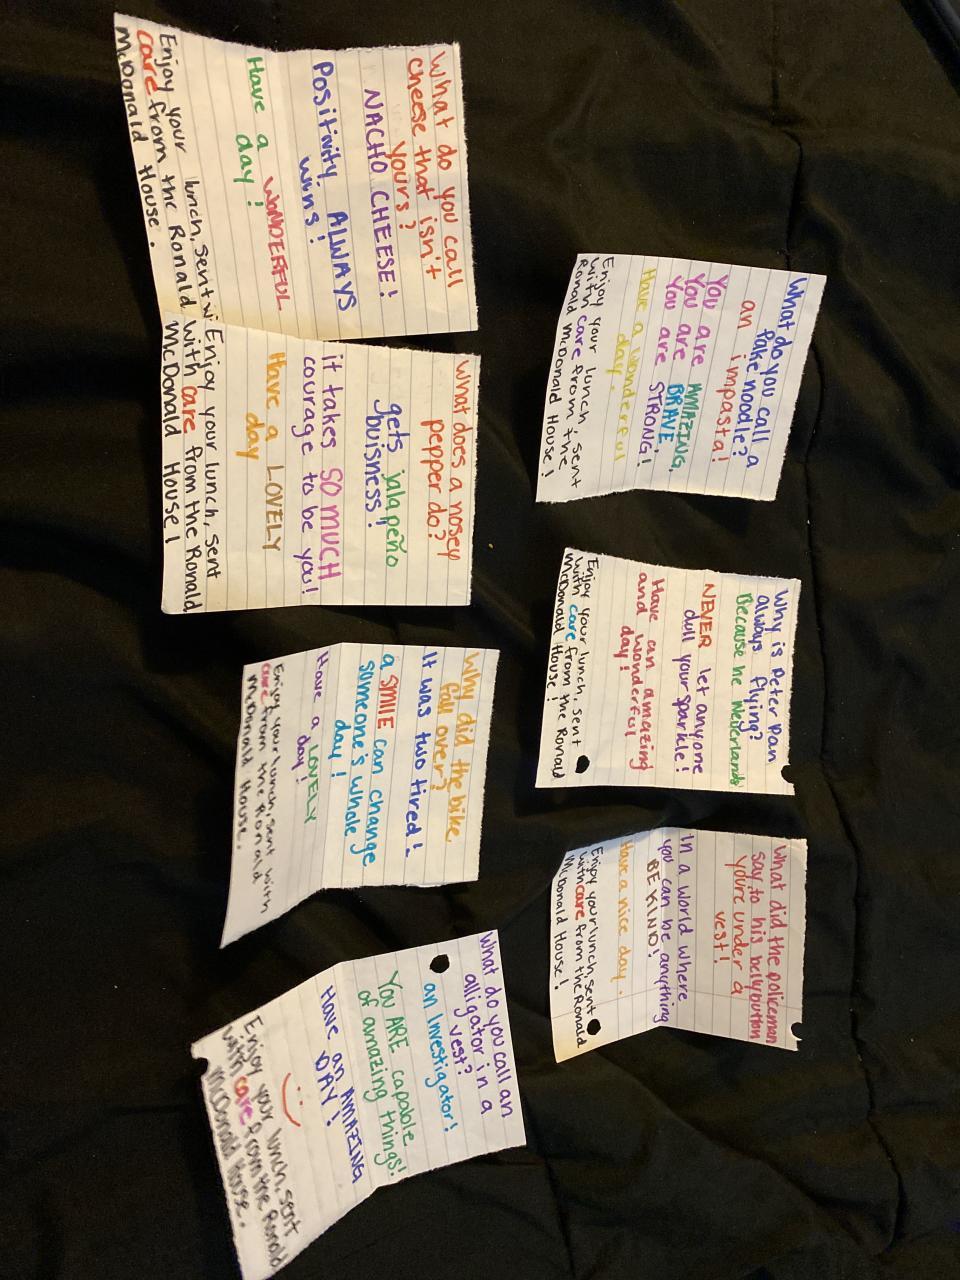 What do you call a
fake noodle?
an impasta!
You are AMAZING,
You are BRAVE,
You are STRONG!
Have a wonderful
day.
Enjoy your lunch, sent
with care from the
Ronald McDonald House!
Why is Peter Pan
always flying?
Because he Neverlands
NEVER let anyone
dull your sparkle!
Have an amazing
and wonderful
day!
Enjoy your lunch, sent
with care from the Ronald
McDonald House!
What did the policeman
say to his bellybutton
youre under a
vest!
In a world where
you can be anything
BE KIND!
Have a nice day.
Enjoy your lunch, sent
with care from the Ronald
McDonald House!
What do you call
cheese that isn't
yours?
NACHO CHEESE!
Positivity ALWAYS
wins!
Have a WONDERFUL
day!
Enjoy your lunch, sent wi
care from the Ronald
McDonald House.
What does a nosey
pepper do?
gets jalapeño
buisness!
it takes SO MUCH
courage to be you!
Have a LOVELY
day
Enjoy your lunch, sent
with care from the Ronald
McDonald House!
Why did the bike
fall over?
It was two tired!
a SMILE can change
someone's whole
day!
Have a LOVELY
day!
Enjoy your lunch, sent with
care from the Ronald
McDonald House.
What do you call an
alligator in a
vest?
an Investigator!
You ARE capable
of amazing things!
Have an AMAZING
DAY!
Enjoy your lunch, sent
with care from the Ronald
McDonald House.